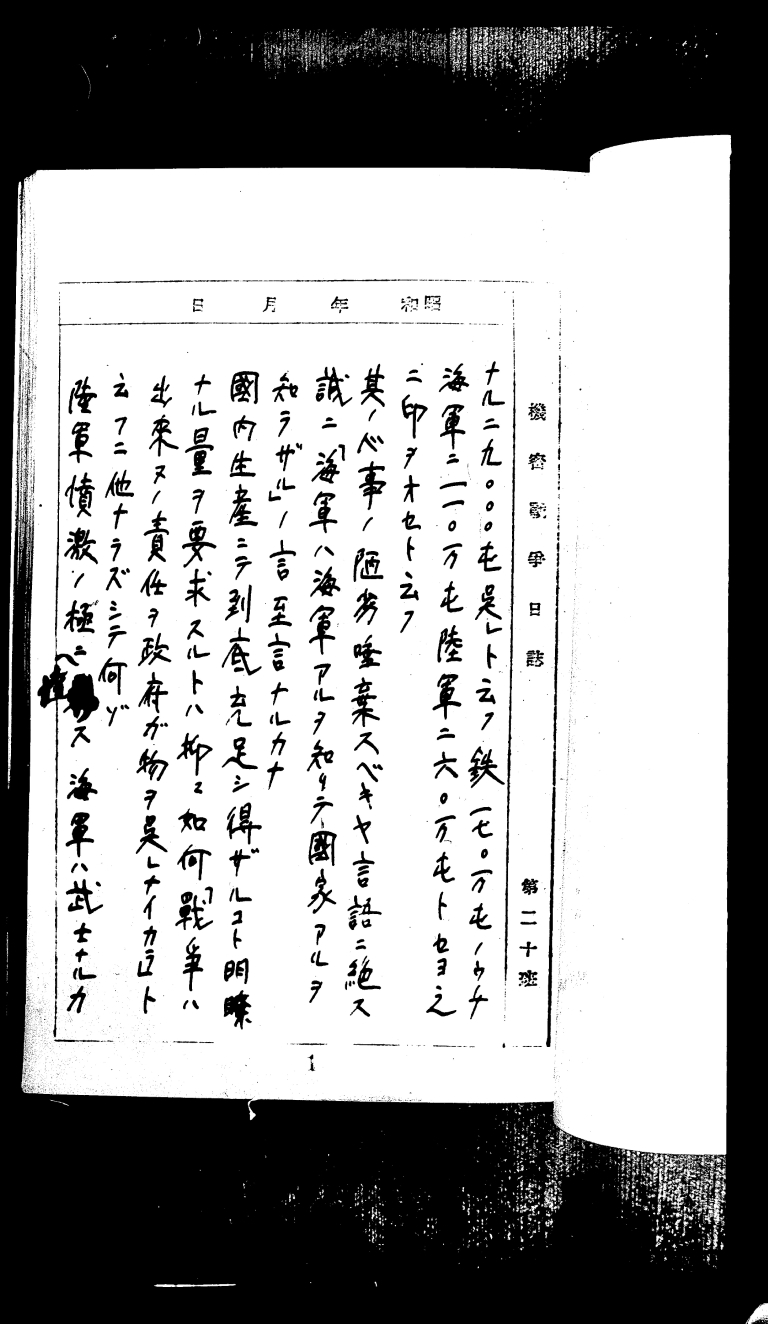 機密戰爭日誌
第二十班
昭和 年 月 日
ナル二九〇〇〇屯呉レト云フ鉄一七〇万屯ノウチ
海軍ニ一一〇万屯陸軍ニ六〇万屯トセヨ之
ニ印ヲオセト云フ
其ノ心事ノ陋劣唾棄スベキヤ言語ニ絶ス
誠ニ「海軍ハ海軍アルヲ知リテ國家アルヲ
知ラザル」ノ言至言ナルカナ
國内生産ニテ到底充足シ得ザルコト明瞭
ナル量ヲ要求スルトハ抑々如何「戰争ハ
出來ヌノ責任ヲ政府ガ物ヲ呉レナイカラ」ト
云フニ他ナラズシテ何ゾ
陸軍憤激ノ極ニ達ス 海軍ハ武士ナルカ
1